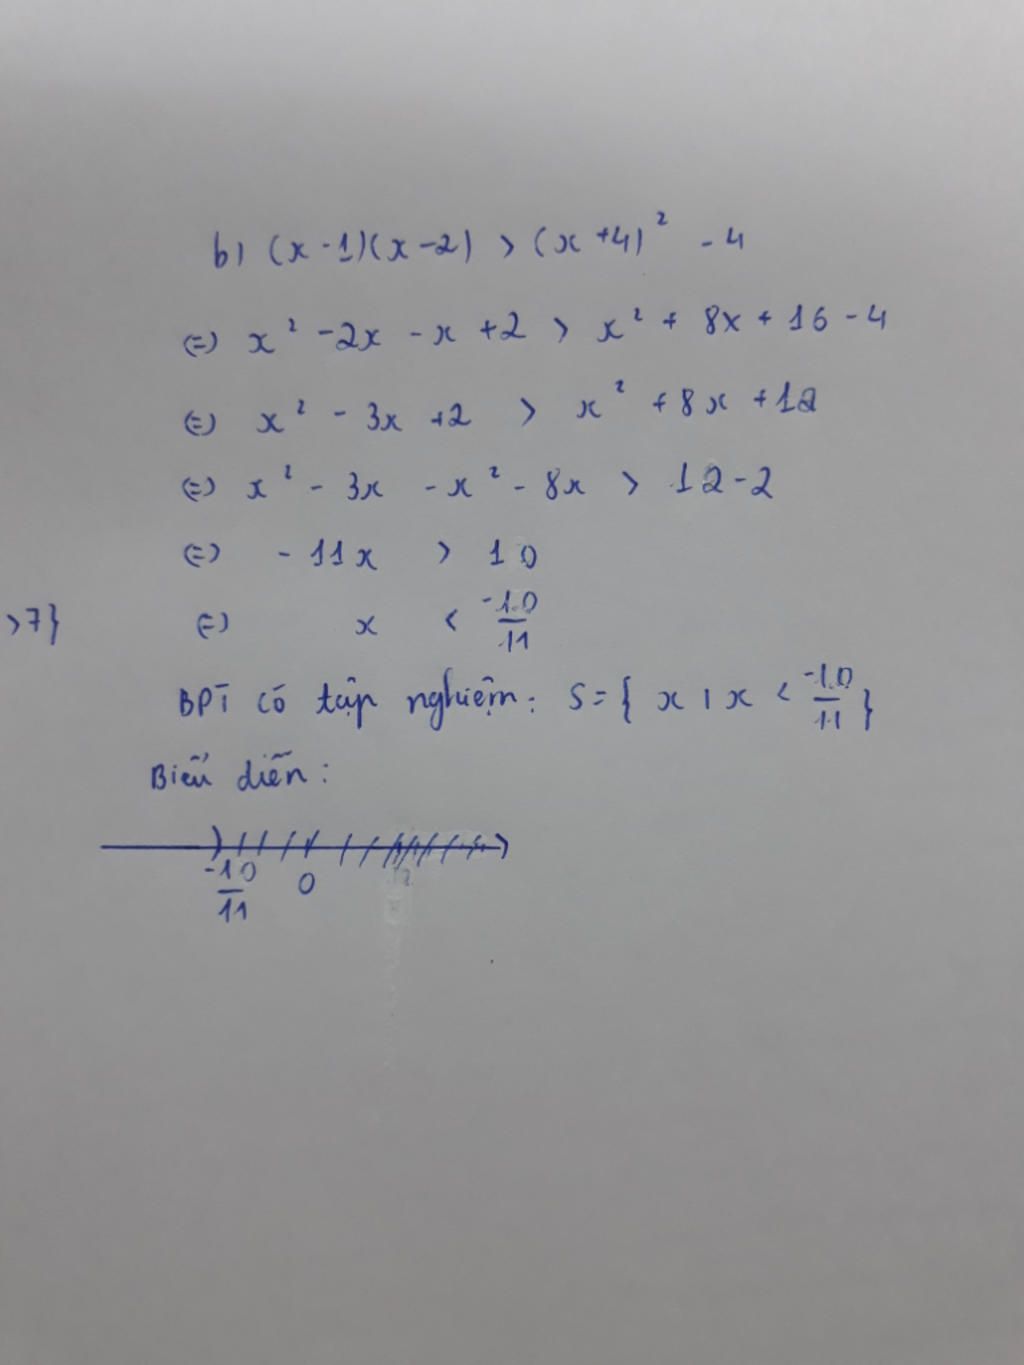 b) (x - 1)(x - 2) > (x + 4)² - 4
(=) x² - 2x - x + 2 > x² + 8x + 16 - 4
(=) x² - 3x + 2 > x² + 8x + 12
(=) x² - 3x - x² - 8x > 12 - 2
(=) - 11x > 10
>7}
(=) x < -10/11
BPT có tập nghiệm: S = { x | x < -10/11 }
Biểu diễn:
-10/11 0